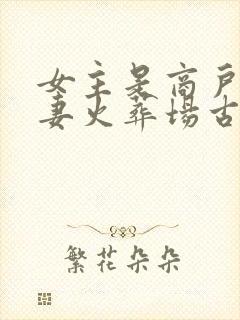 女主是商户
妻火葬场古
繁花朵朵